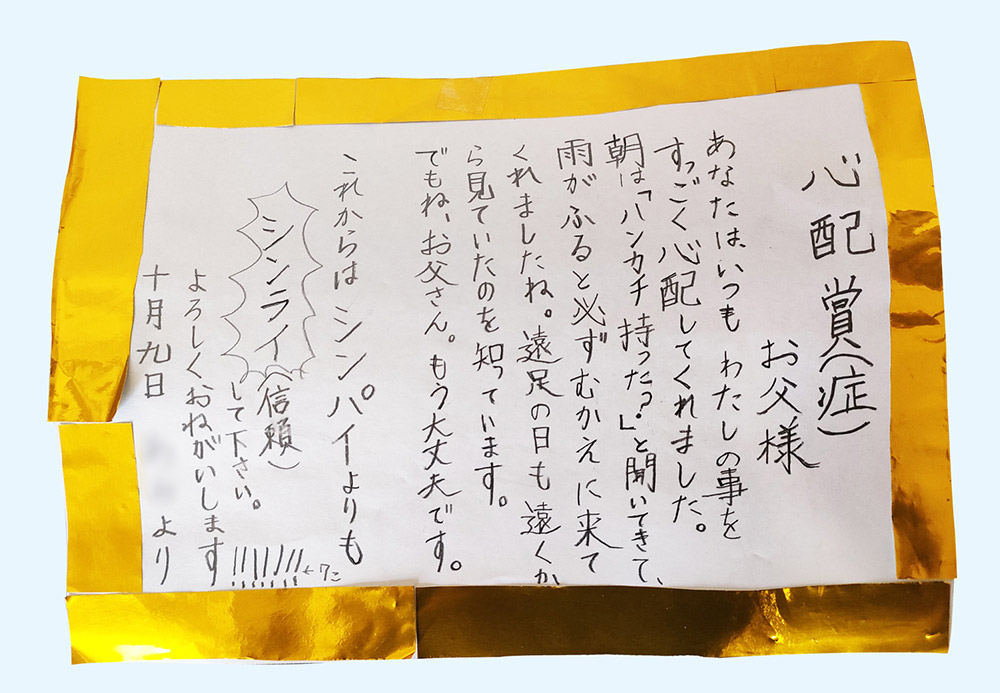 心配賞(症)
お父様
あなたは、いつも わたしの事を
すっごく心配してくれました。
朝は「ハンカチ持った?」と聞いてきて、
雨がふると必ずむかえに来て
くれましたね。遠足の日も遠くか
ら見ていたのを知っています。
でもね、お父さん。もう大丈夫です。
これからは シンパイよりも
シンライ(信頼)
して下さい。
よろしくおねがいします!!!!!!!←7こ
十月九日
より